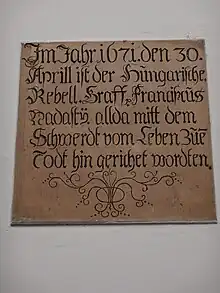 Im Jahr. 1671. den 30.
Aprill ist der Hungarische
Rebell. Graff. Franciscus
Nadasty allda mitt dem
Schwerdt vom Leben Zue
Todt hin gerichet wordten.